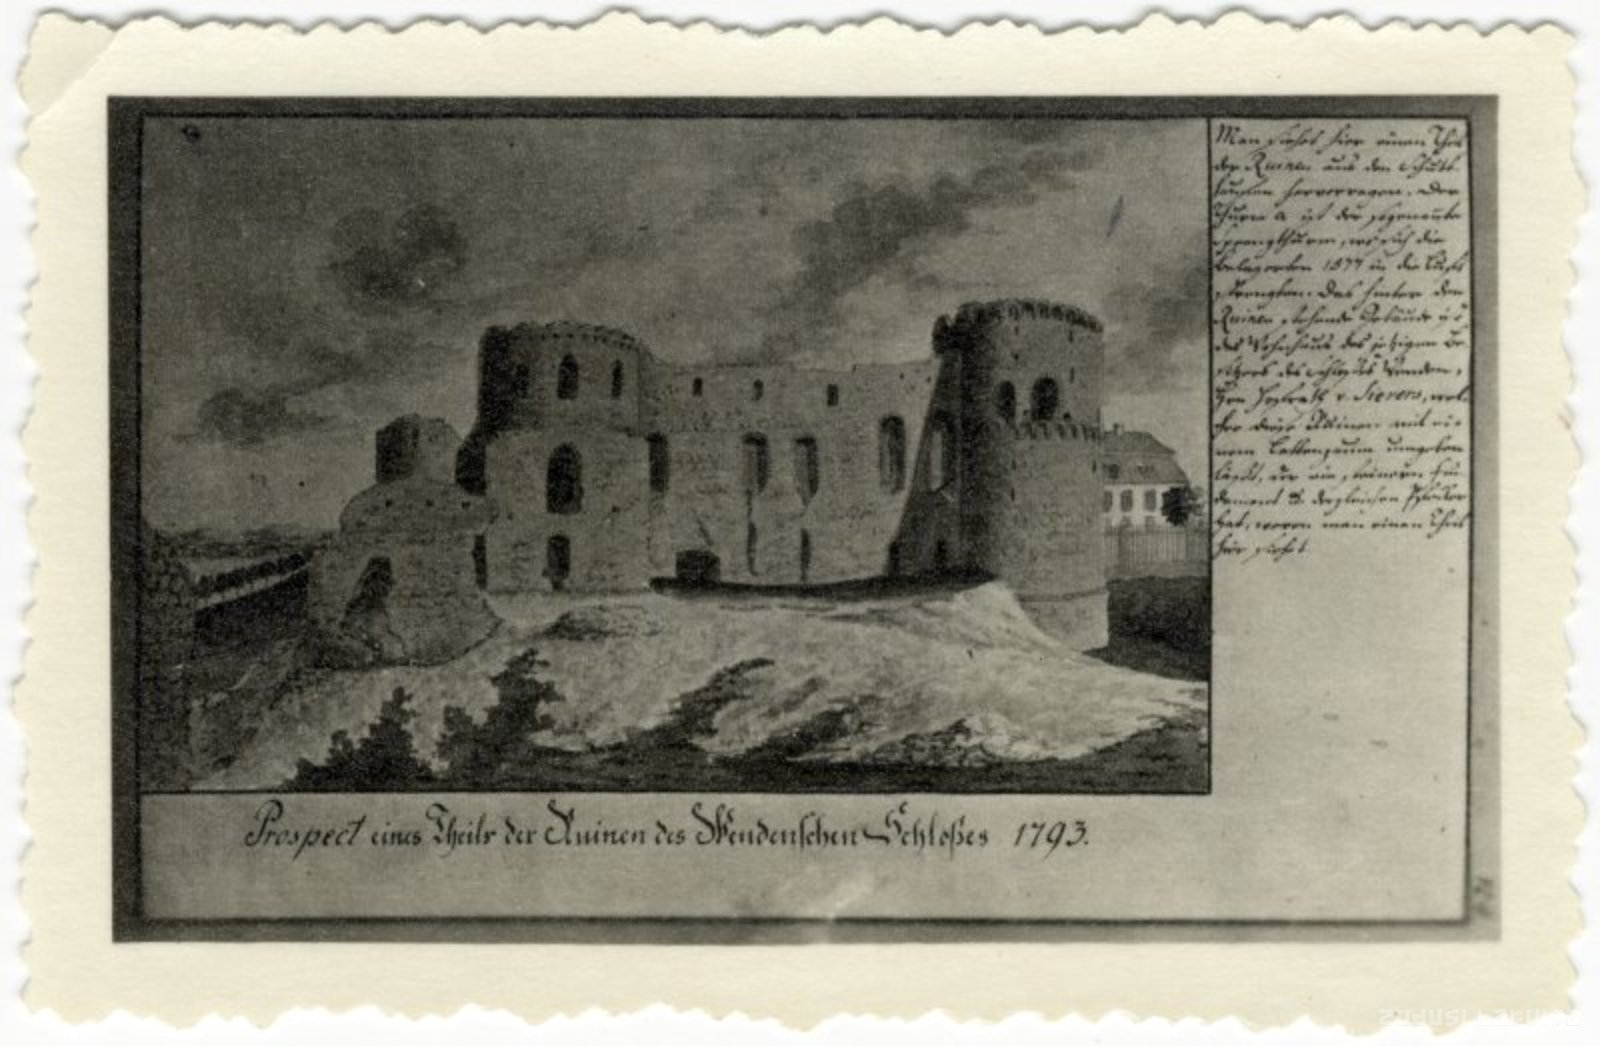 Man siehet hier einen Theil
der Ruinen aus den Schutt-
haufen hervorragen. Der
Thurm a ist der sogenante
wo sich die
Belagerten 1577 in die Luft
sprengten. Das hinter den
Ruinen stehende Gebäude ist
das Wohnhaus des jetzigen Be-
sitzers des Schloßes Wenden,
Hrn Hofrath v. Sievers, wel-
cher diese Ruinen mit ei-
nem Lattenzaun umgeben
läßt, der ein steinern Fun-
dament u. dergleichen Pfeiler
hat, wovon man einen Theil
hier siehet
Prospect eines Theils der Ruinen des Wendenschen Schloßes 1793.